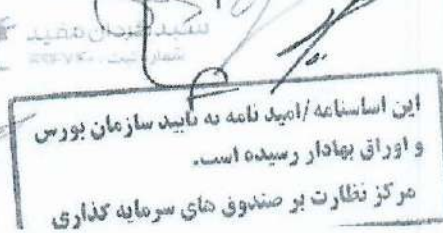 سبدگردان مفید
این اساسنامه/امید نامه به تایید سازمان بورس
و اوراق بهادار رسیده است.
مرکز نظارت بر صندوق های سرمایه گذاری